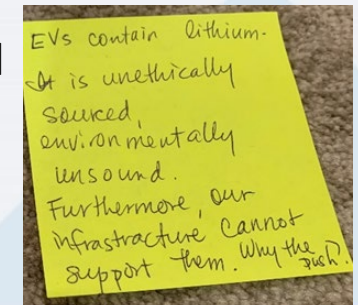 EVs contain lithium.
It is unethically
sourced,
environmentally
unsound.
Furthermore, our
infrastracture cannot
support them. Why the
push?